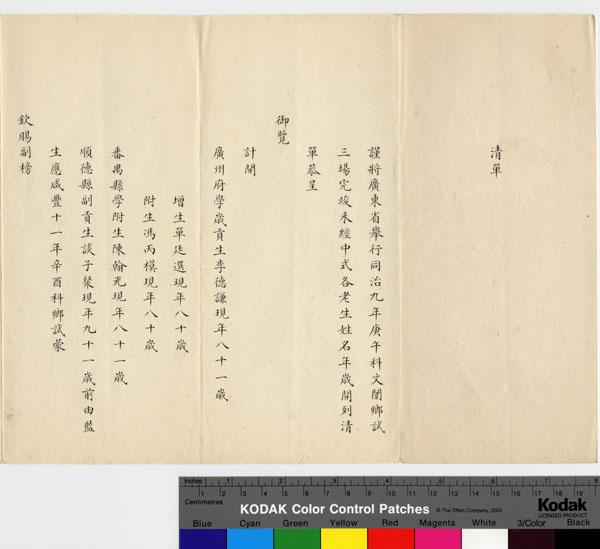 清單
謹將廣東省舉行同治九年庚午科文闈鄉試
三場完竣未經中式各老生姓名年歲開列清
單恭呈
御覽
計開
廣州府學歲貢生李德謙現年八十一歲
增生單廷選現年八十歲
附生馮丙模現年八十歲
番禺縣學附生陳翰光現年八十一歲
順德縣副貢生談子粲現年九十一歲前由監
生應咸豐十一年辛酉科鄉試蒙
欽賜副榜
Inches 1 2 3 4 5 6 7 8
Centimetres 1 2 3 4 5 6 7 8 9 10 11 12 13 14 15 16 17 18 19
KODAK Color Control Patches © The Tiffen Company, 2000 Kodak
LICENSED PRODUCT
Blue Cyan Green Yellow Red Magenta White 3/Color Black